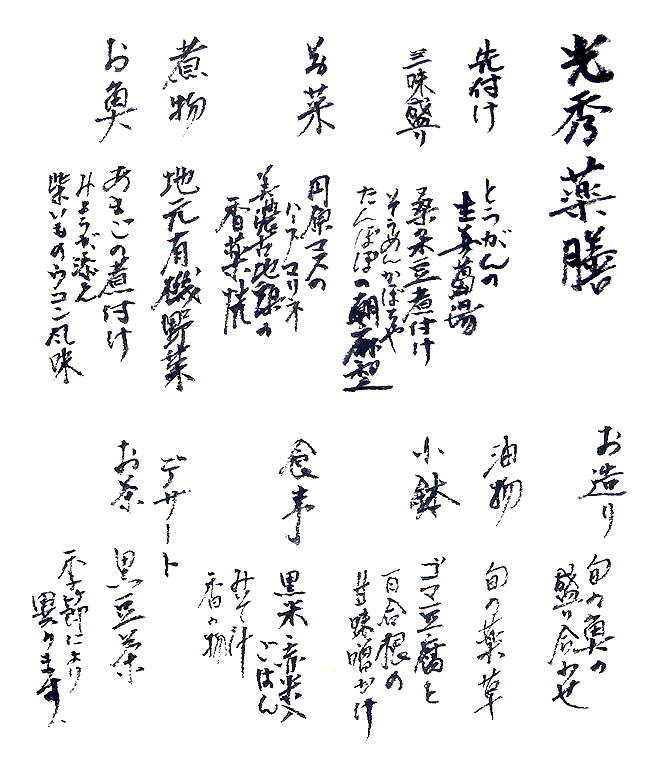 光秀薬膳
先付け
とうがんの
生姜葛湯
三味盛り
桑朶豆煮付け
そうめんかぼちゃ
たんぽぽの
前菜
円原マスの
ハーブマリネ
美濃古地鶏の
香草焼
煮物
地元有機野菜
お魚
あまごの煮付け
みょうが添え
紫いものウコン風味
お造り
旬の魚の
盛り合わせ
油物
旬の薬草
小鉢
ゴマ豆腐と
百合根の
甘味噌かけ
食事
黒米・赤米入
ごはん
みそ汁
香の物
デザート
お茶
黒豆茶
季節により
異ります。